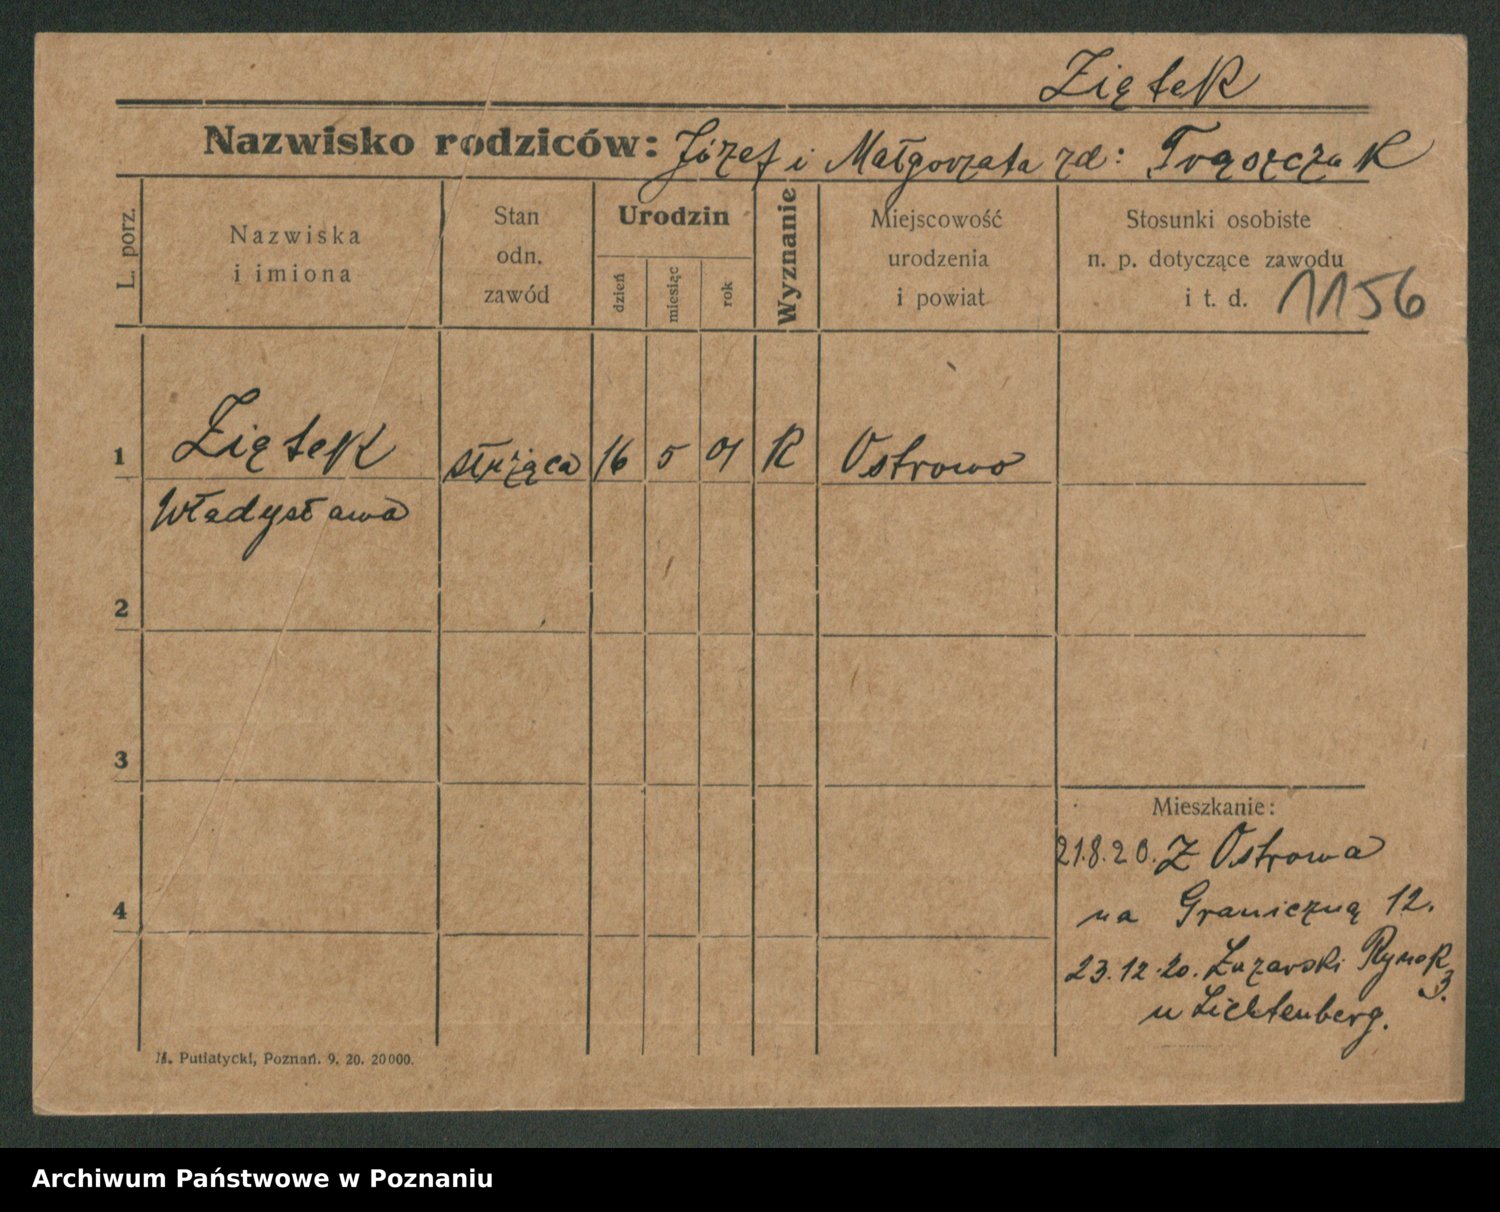 Ziętek
Nazwisko rodziców: Józef i Małgorzata zd:
L. porz.
Nazwiska
i imiona
Stan
odn.
zawód
Urodzin
dzień
miesiąc
rok
Wyznanie
Miejscowość
urodzenia
i powiat
Stosunki osobiste
n. p. dotyczące zawodu
i t. d. 1156
1 Ziętek służąca 16 5 01 R Ostrowo
Władysława
2
3
4
Mieszkanie:
21.8.20. Z Ostrowa
na Graniczną 12.
23.12.20. Łazarski Rynek
3.
u Lichtenberg.
M. Putiatycki, Poznań. 9. 20. 20000.
Archiwum Państwowe w Poznaniu